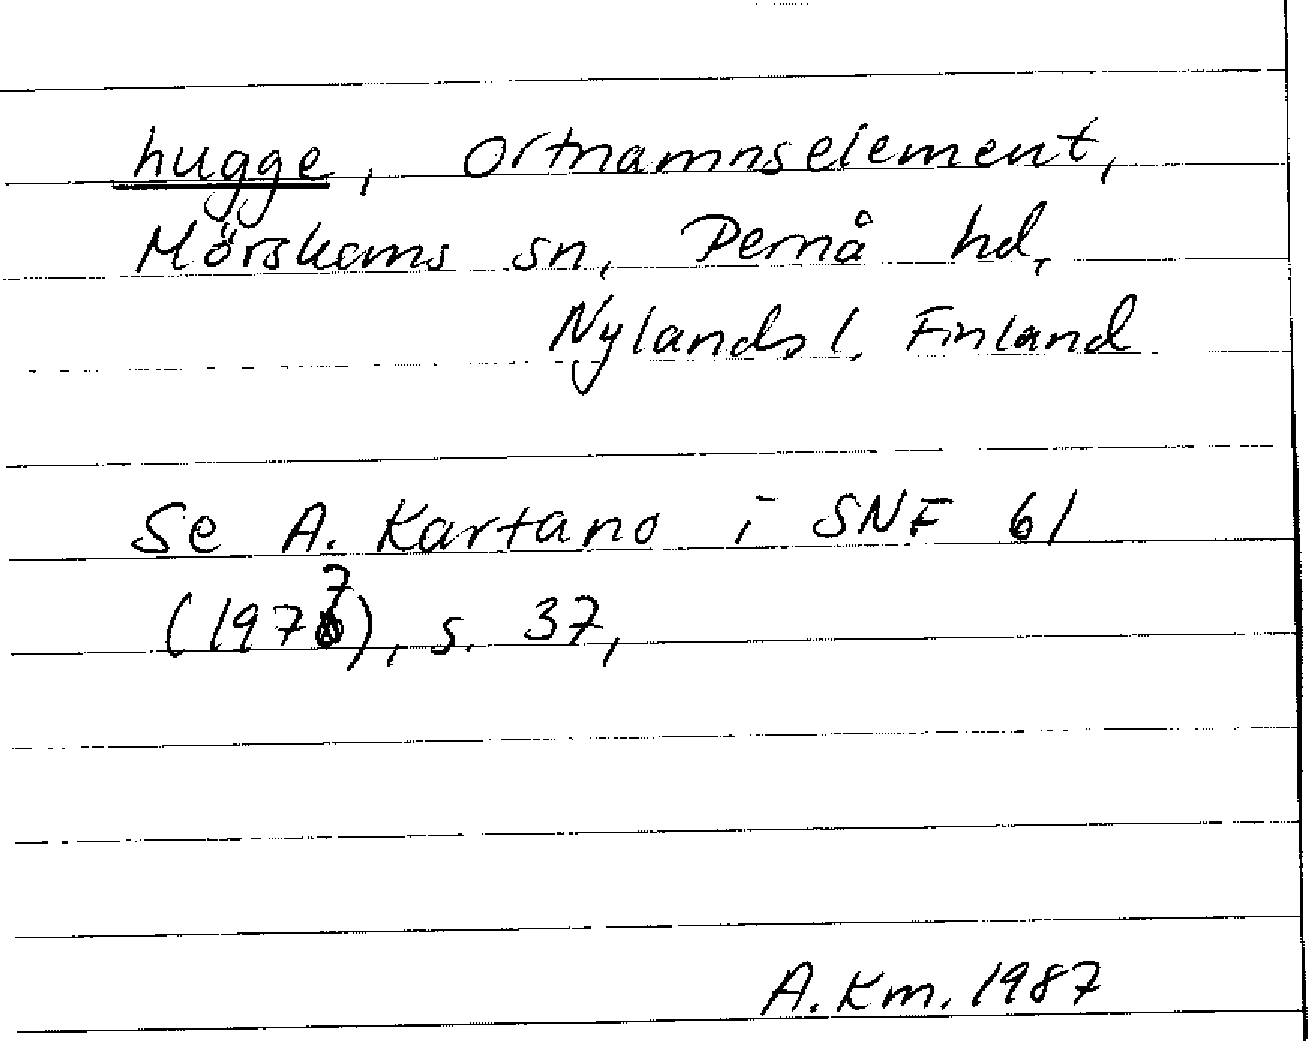 hugge, Ortnamnselement,
Mörskoms sn, Pernå hd,
Nylands l. Finland
Se A. Kartano i SNF 61
(1977), s. 37,
A. Km. 1987